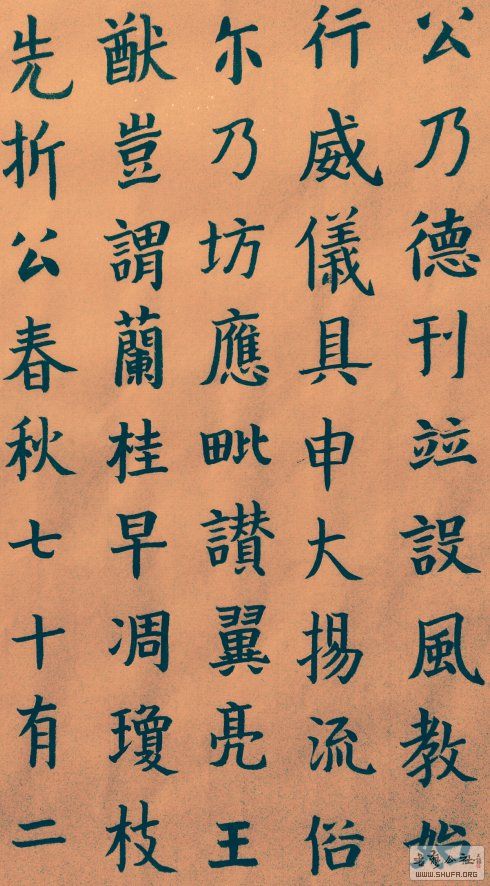 公乃德刊竝設風教始
行威儀具申大揚流俗
尓乃坊應毗讚翼亮王
猷豈謂蘭桂早凋瓊枝
先折公春秋七十有二
WWW.SHUFA.ORG